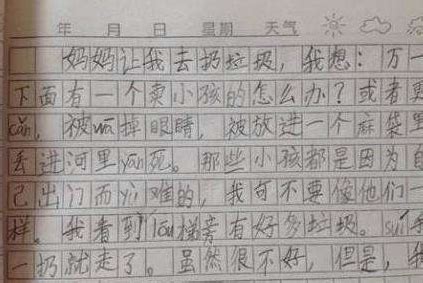 年 月 日 星期 天气
妈妈让我去扔垃圾，我想：万一
下面有一个卖小孩的怎么办？或者更
cǎn，被wā掉眼睛，被放进一个麻袋里
丢进河里yān死。那些小孩都是因为自
己出门而yù难的，我可不要像他们一
样。我看到lóu梯旁有好多垃圾。suí手
一扔就走了。虽然很不好，但是，我